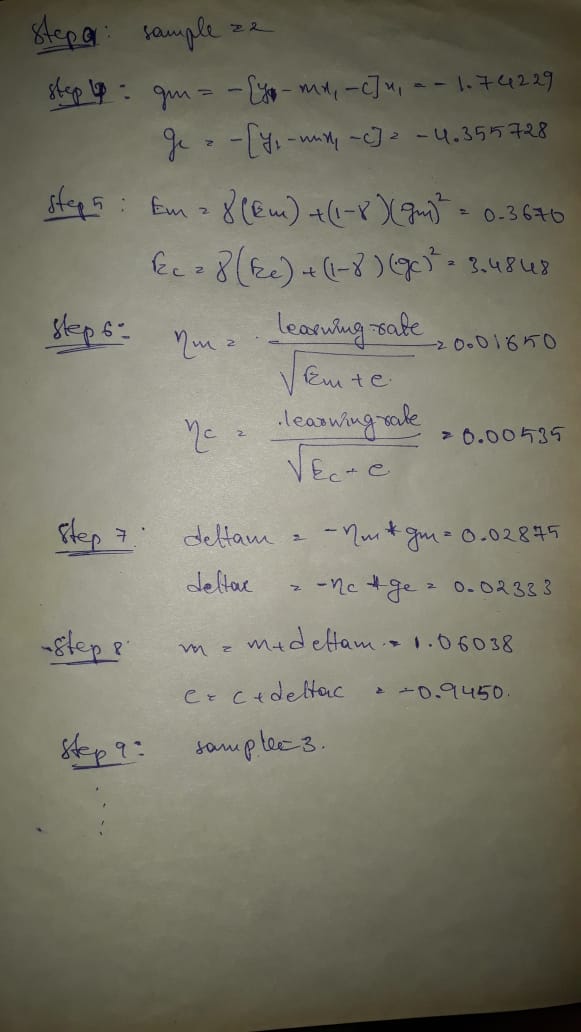 Step 9: sample = 2
Step 4: gm = -[y₁ - mx₁ - c]x₁ = -1.74229
gc = -[y₁ - mx₁ - c] = -4.355728
Step 5: Em = γ(Em) + (1-γ)(gm)² = 0.3670
Ec = γ(Ec) + (1-γ)(gc)² = 3.4848
Step 6: ηm = learning rate / √Em + e = 0.01650
ηc = learning rate / √Ec + e = 0.00535
Step 7: deltam = -ηm * gm = 0.02875
deltac = -ηc * gc = 0.02333
Step 8: m = m + deltam = 1.06038
c = c + deltac = -0.9450.
Step 9: sample = 3.